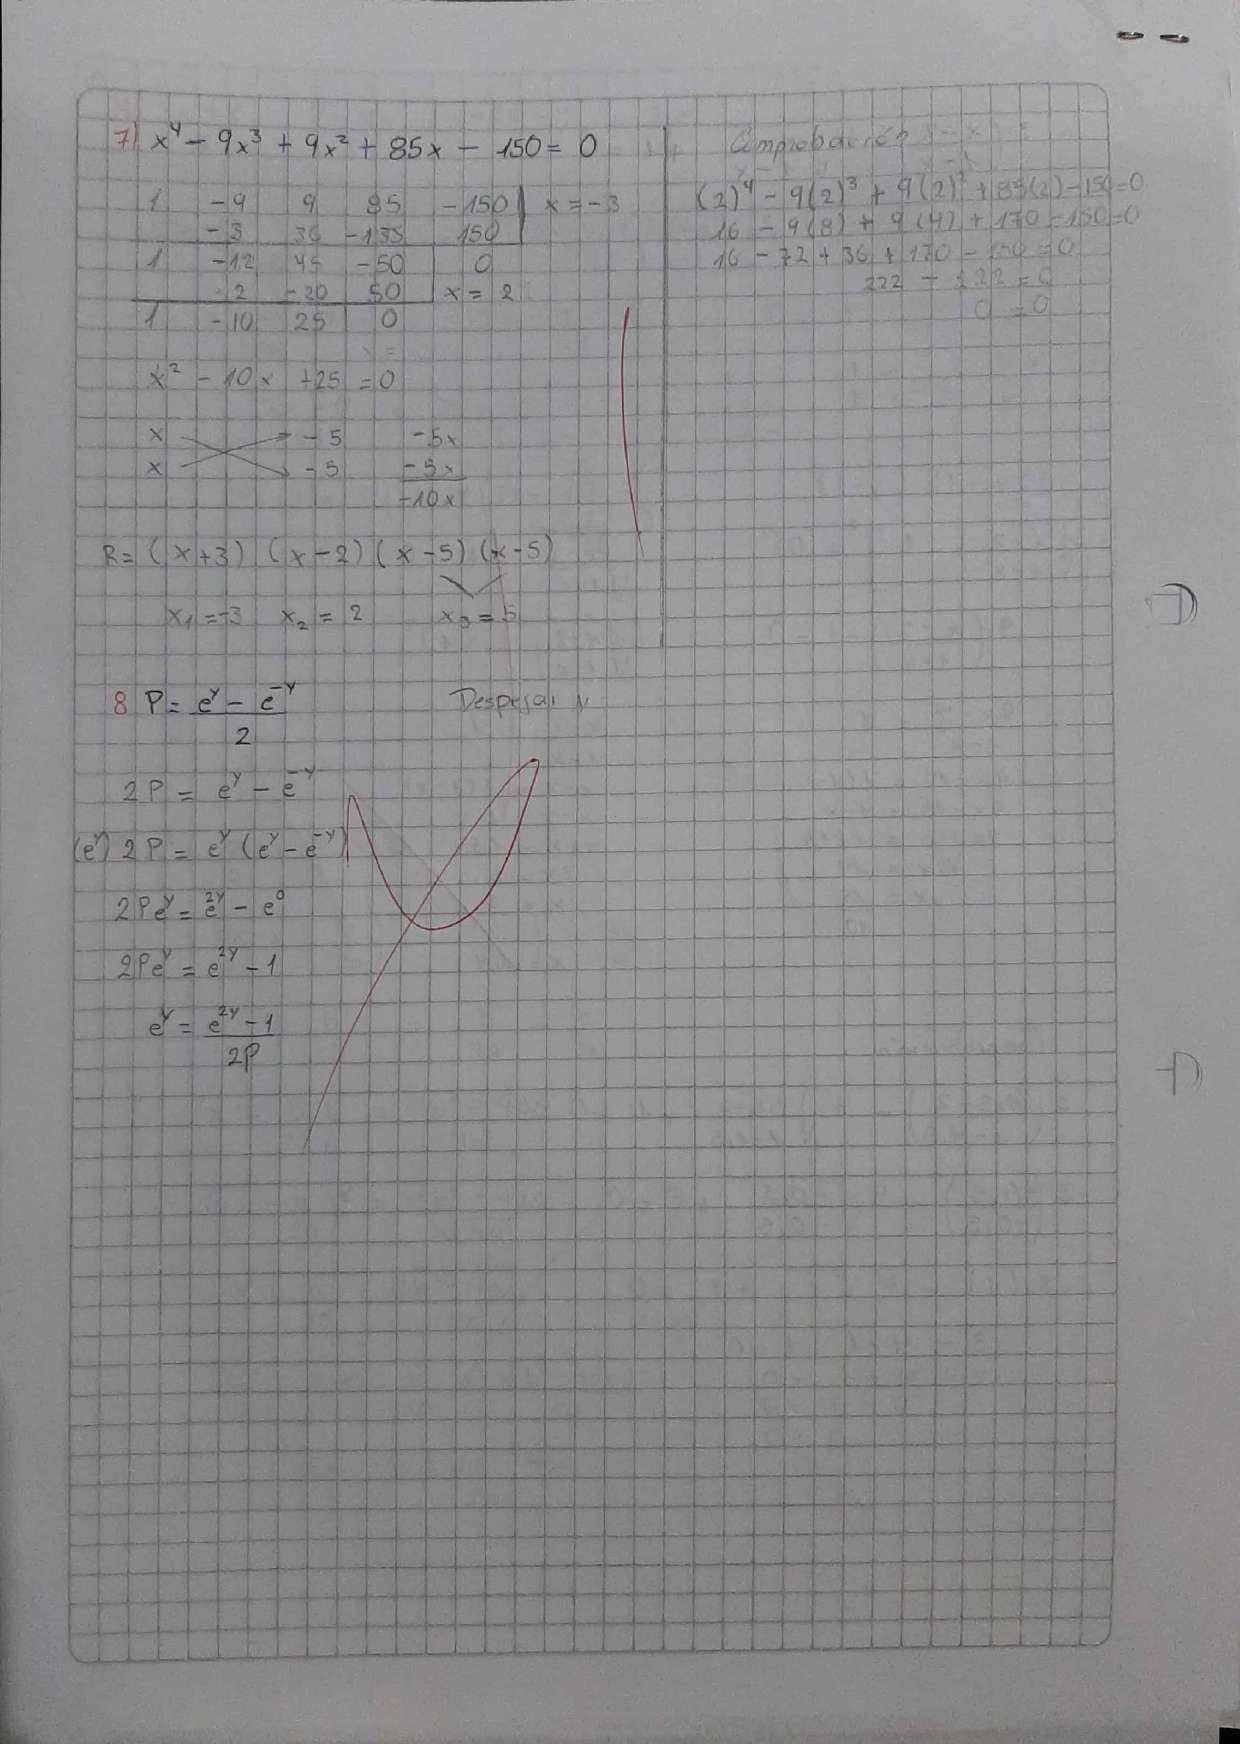 7) x⁴ - 9x³ + 9x² + 85x - 150 = 0
1 -9 9 85 -150 x = -3
-3 36 -135 150
1 -12 45 -50 0
2 -20 50 x = 2
1 -10 25 0
x² - 10x +25 = 0
x -5 -5x
x -5 -5x
-10x
R = (x+3) (x-2) (x-5) (x-5)
x₁ = -3 x₂ = 2 x₃ = 5
Comprobación
(2)⁴ - 9(2)³ + 9(2)² + 85(2) - 150 = 0
16 - 9(8) + 9(4) + 170 - 150 = 0
16 - 72 + 36 + 170 - 150 = 0
222 - 222 = 0
0 = 0
8 P = (e^y - e^-y) / 2
Despejar y
2P = e^y - e^-y
(e^y) 2P = e^y (e^y - e^-y)
2Pe^y = e^2y - e⁰
2Pe^y = e^2y - 1
e^y = (e^2y - 1) / 2P